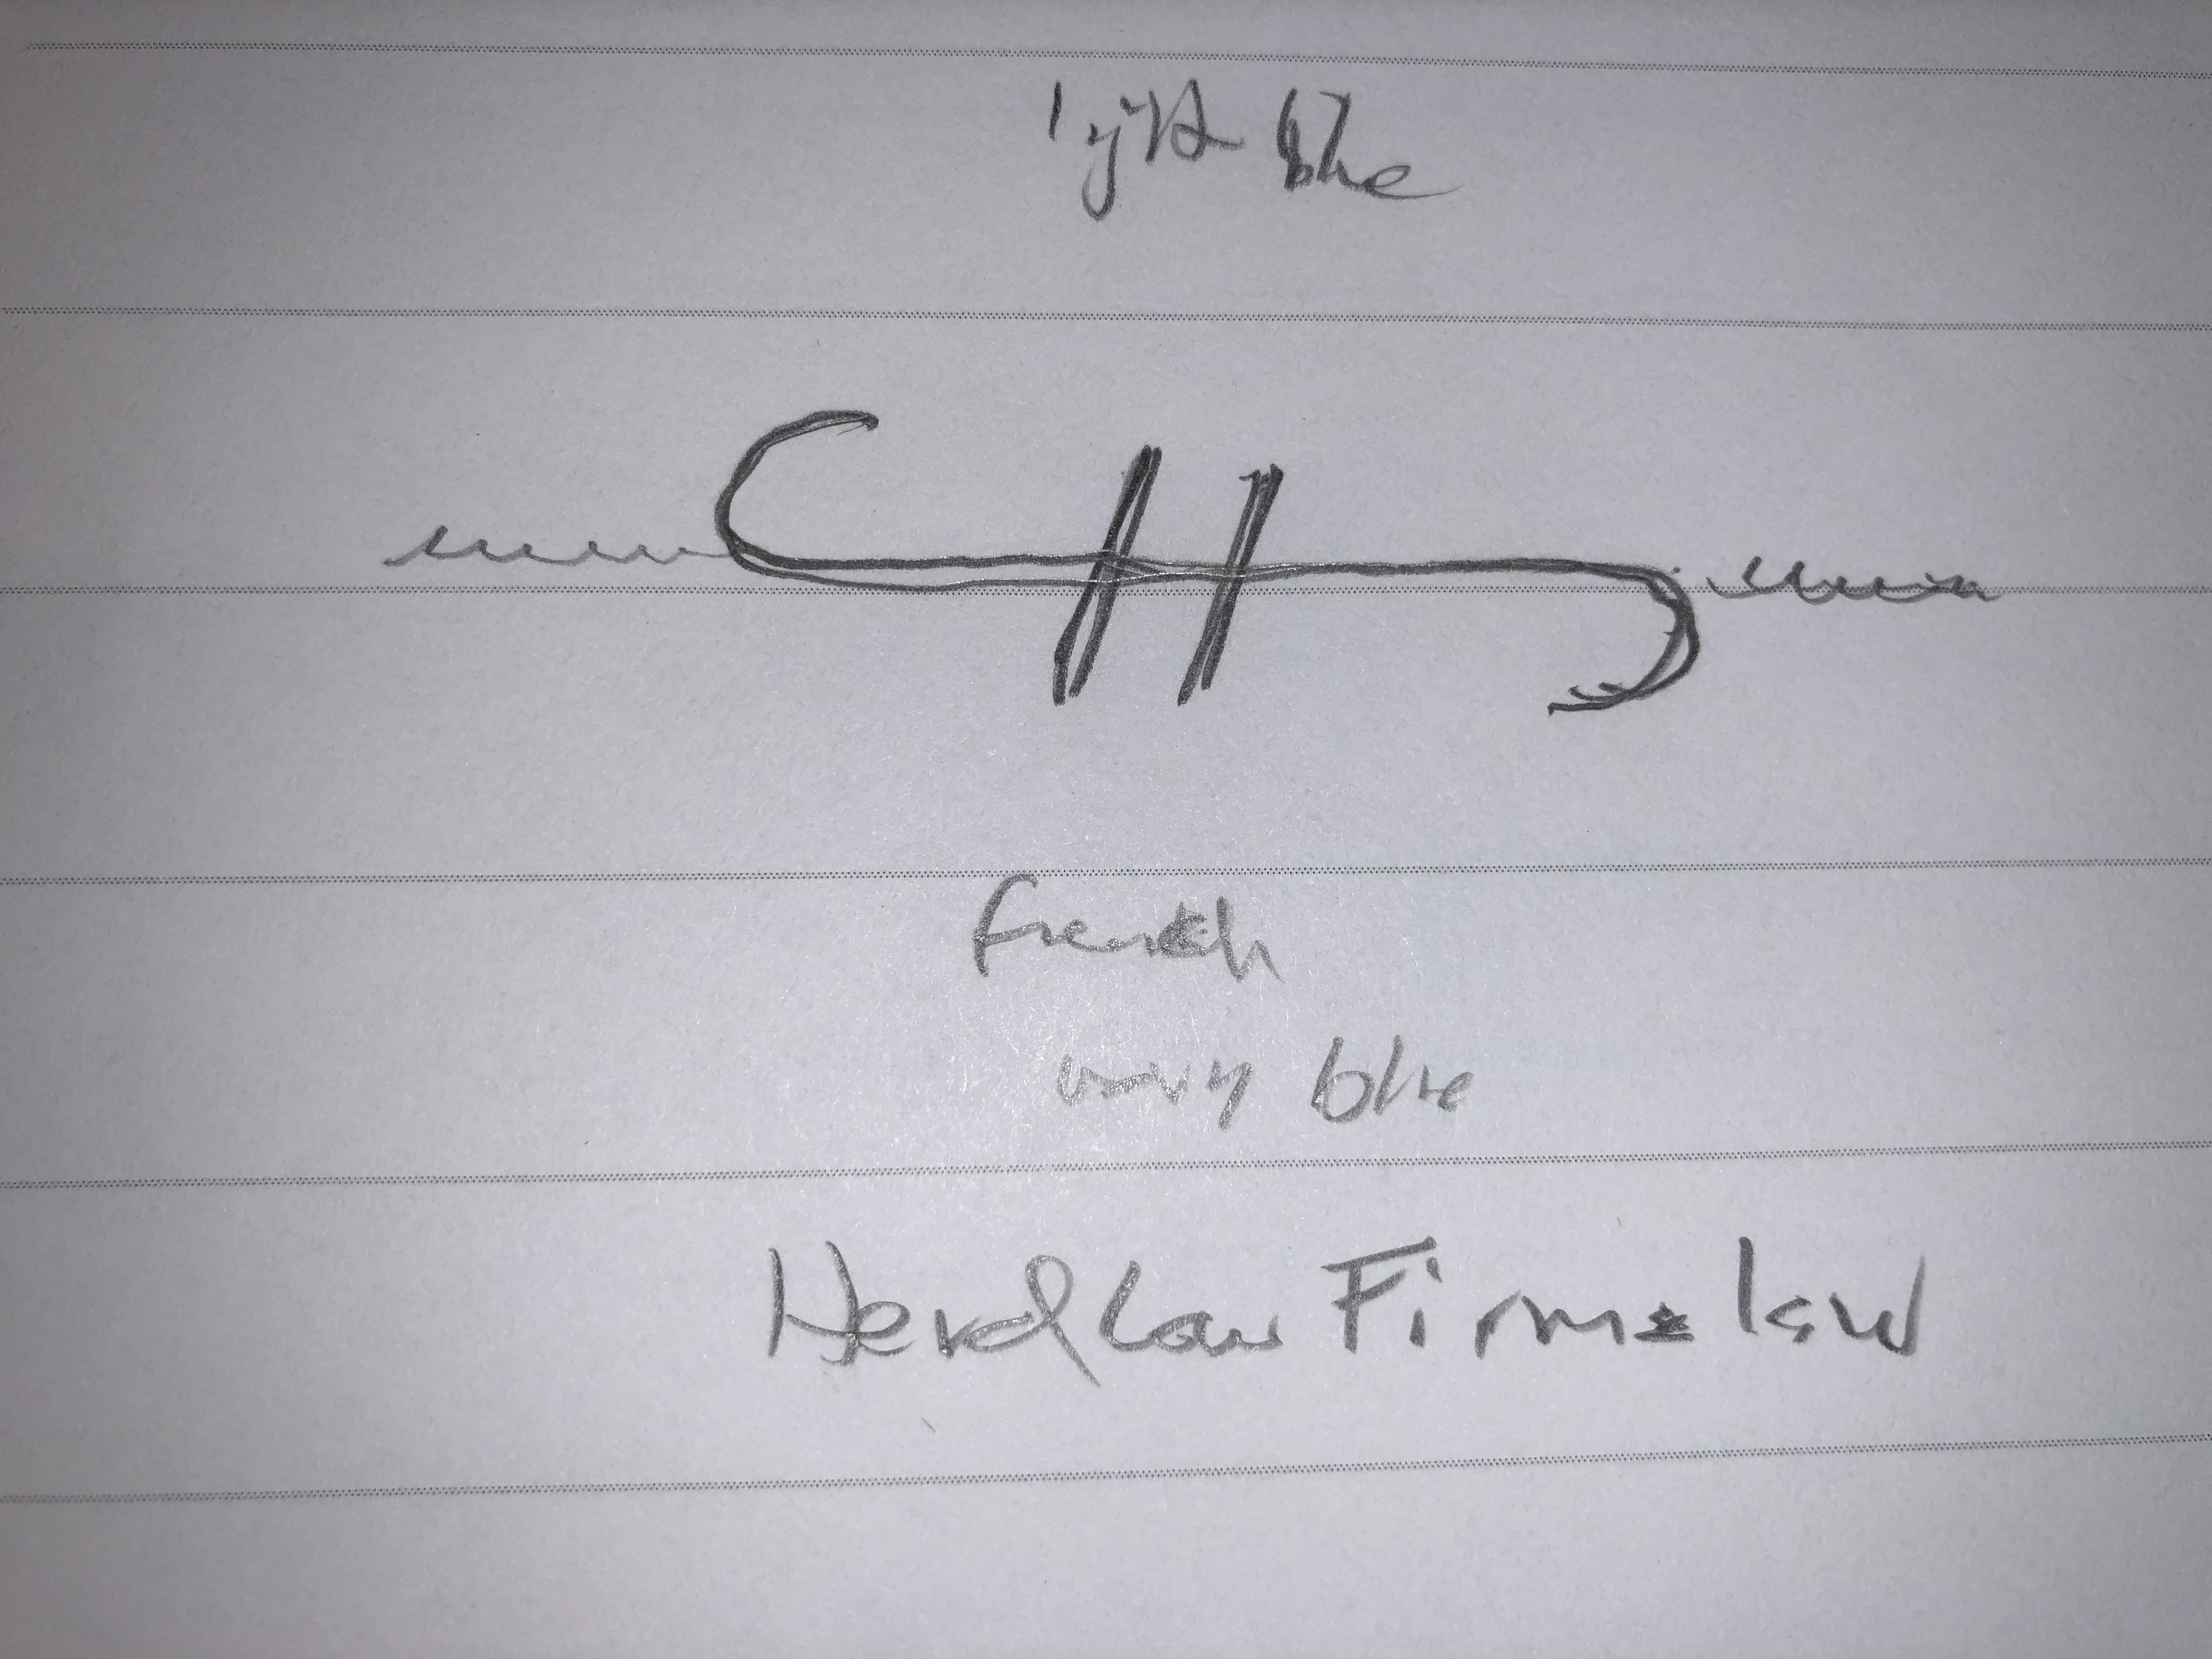 light blue
H
french
navy blue
Herd Law Firm.law